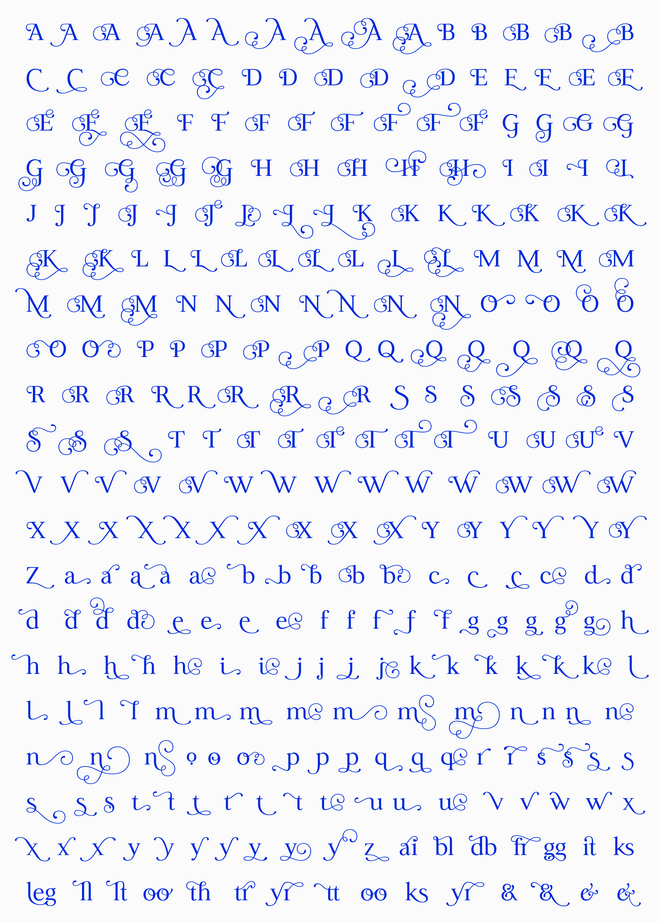 A A A A A A A A A A B B B B B
C C C C C D D D D D E E E E E
E E E F F F F F F F F G G G G
G G G G G H H H H H I I I I
J J J J J J J J J K K K K K K K
K K L L L L L L L L L M M M M
M M M N N N N N N N O O O O
O O P P P P P Q Q Q Q Q Q Q
R R R R R R R R S S S S S S S
S S S T T T T T T T T U U U V
V V V V V W W W W W W W W W
X X X X X X X X X X Y Y Y Y Y Y
Z a a a a a b b b b b c c c c d d
d d d d e e e e f f f f f g g g g g h
h h h h h i i j j j j k k k k k k l
l l l l m m m m m m m n n n n
n n n o o o p p p q q q r r s s s s
s s s t t t t t t t u u u v v w w x
x x x y y y y y y y z ai bl db fr gg it ks
leg ll lt oo th tr yr tt oo ks yr & & & &